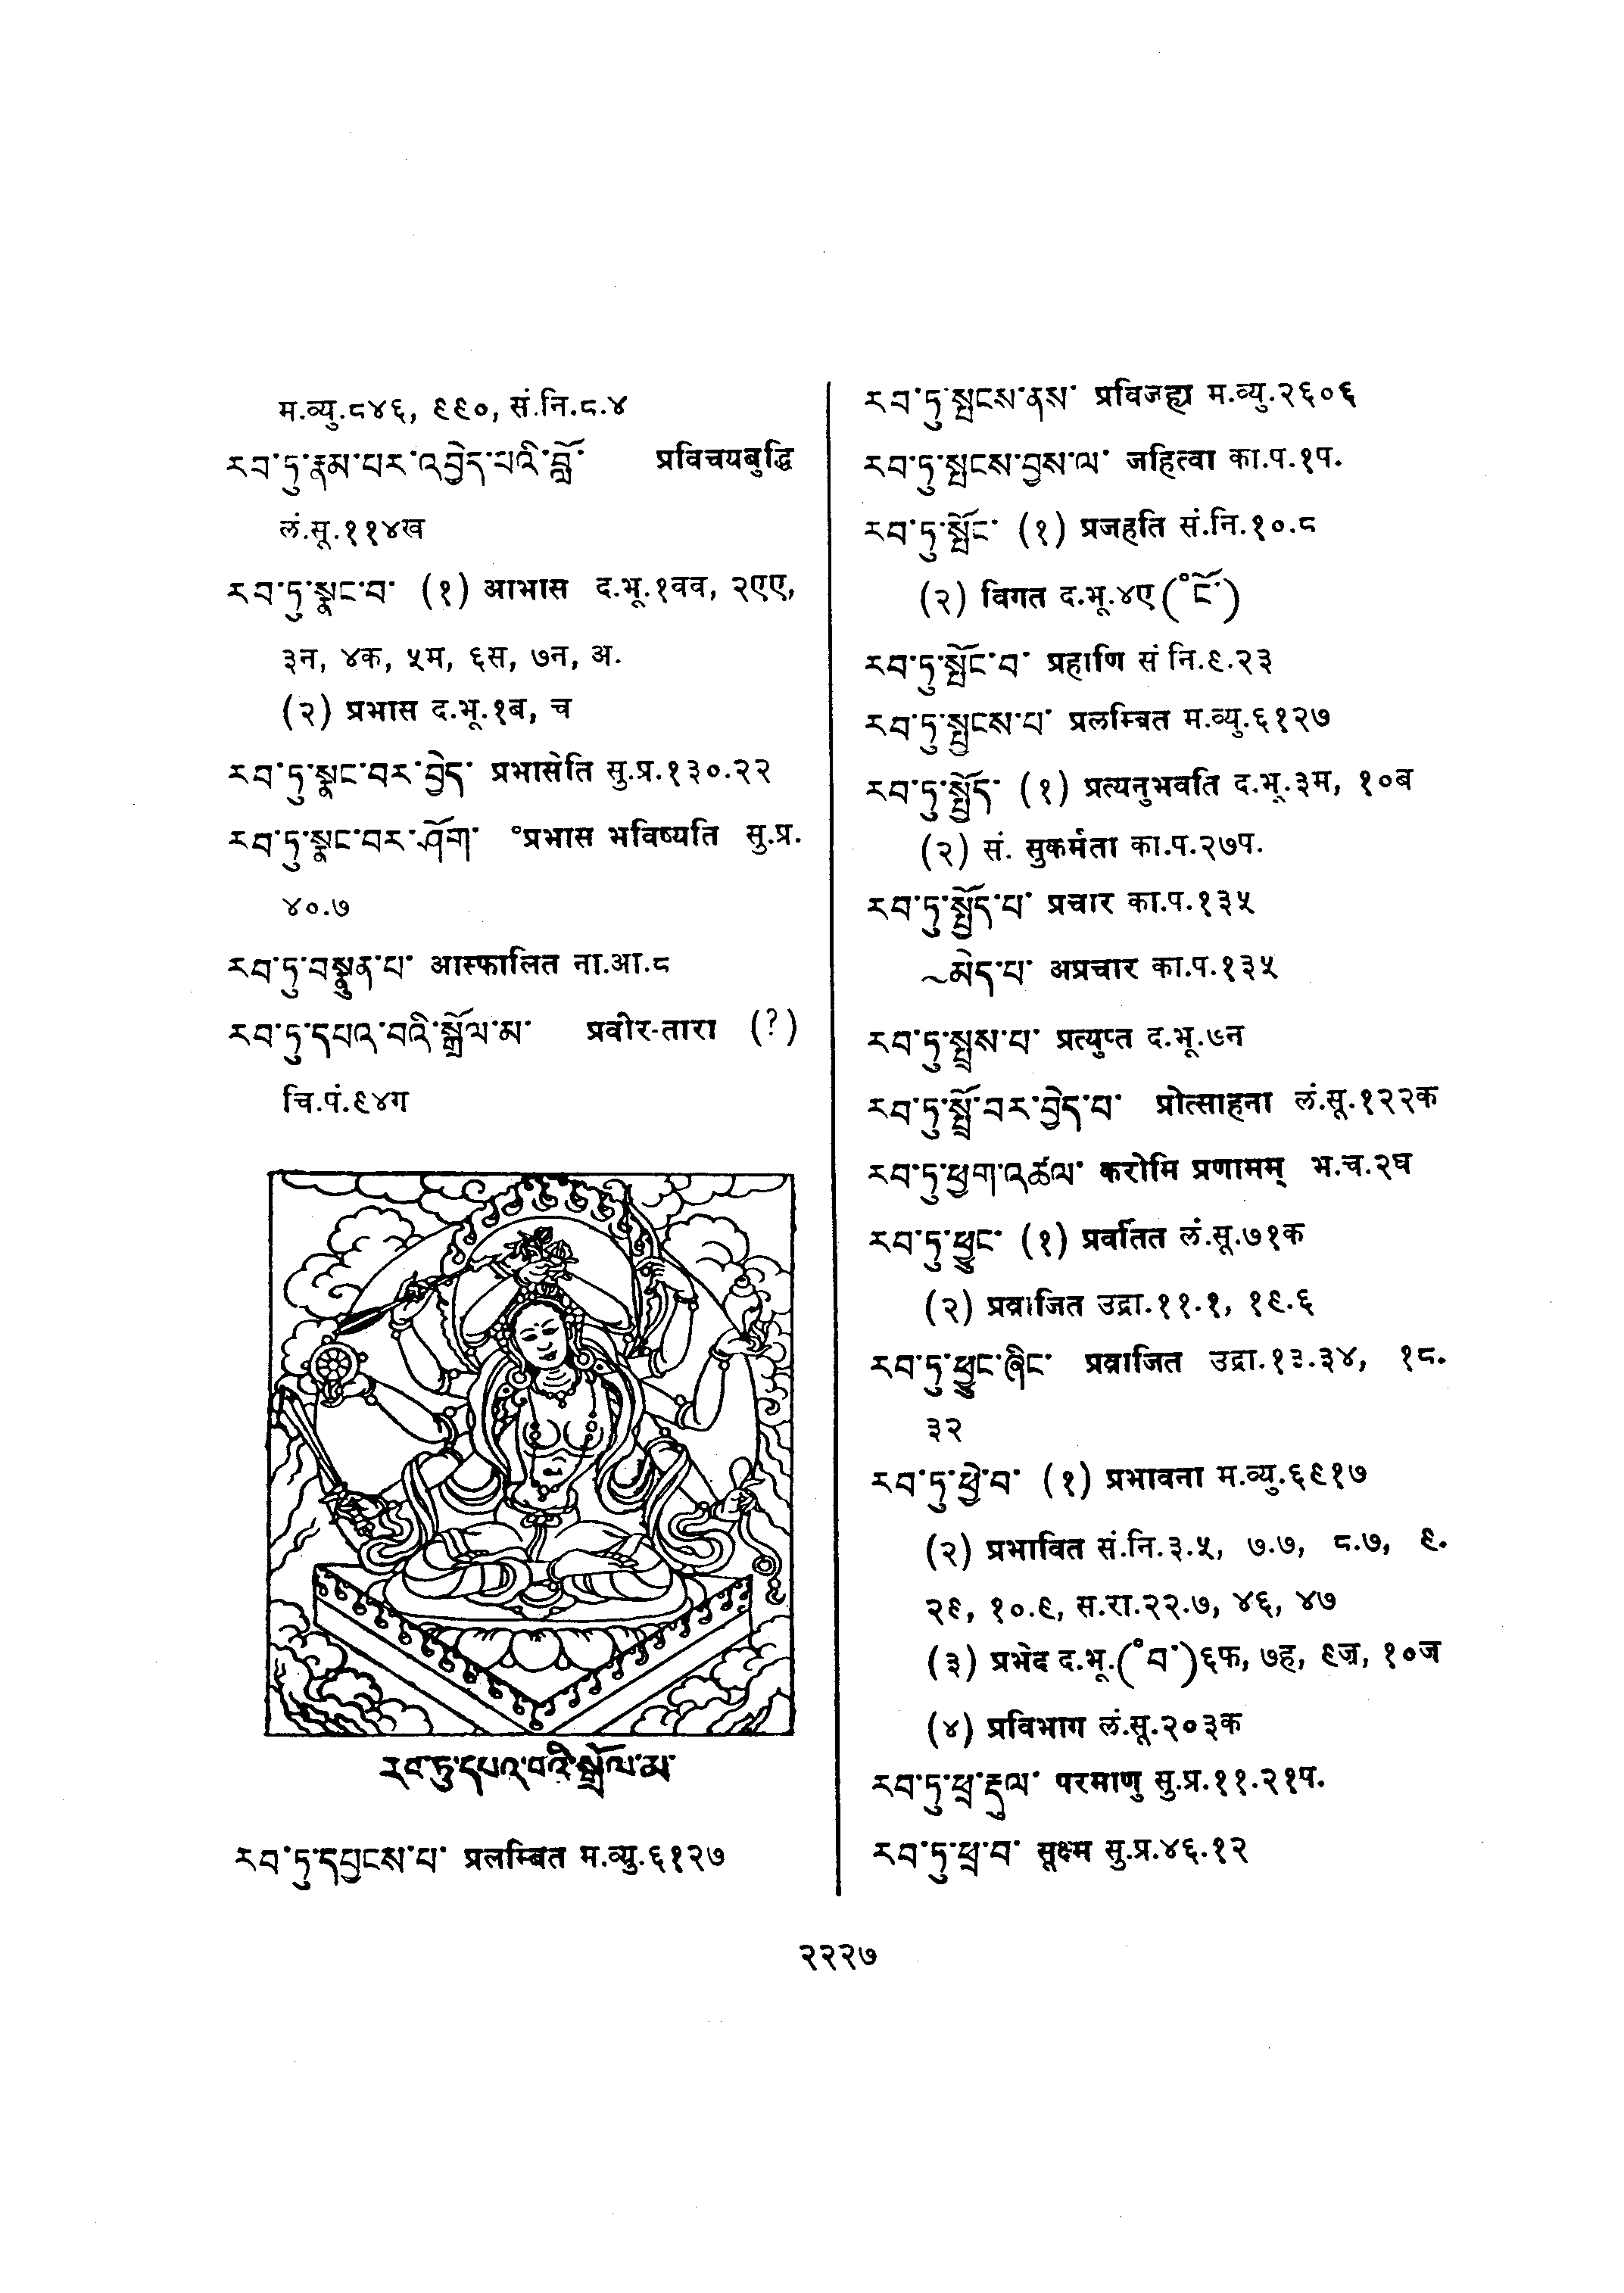 म.व्यु.८४६, ९९०, सं.नि.८.४
རབ་ཏུ་རྣམ་པར་འབྱེད་པའི་བློ་ प्रविचयबुद्धि
लं.सू.११४ख
རབ་ཏུ་སྣང་བ་ (१) आभास द.भू.१वव, २एए,
३न, ४क, ५म, ६स, ७न, अ.
(२) प्रभास द.भू.१ब, च
རབ་ཏུ་སྣང་བར་བྱེད་ प्रभासेति सु.प्र.१३०.२२
རབ་ཏུ་སྣང་བར་ཤོག་ °प्रभास भविष्यति सु.प्र.
४०.७
རབ་ཏུ་བསྣུན་པ་ आस्फालित ना.आ.८
རབ་ཏུ་དཔའ་བའི་སྒྲོལ་མ་ प्रवीर-तारा (?)
चि.पं.९४ग
རབ་ཏུ་དཔའ་བའི་སྒྲོལ་མ་
རབ་ཏུ་དཔྱངས་པ་ प्रलम्बित म.व्यु.६१२७
རབ་ཏུ་སྤངས་ནས་ प्रविजह्य म.व्यु.२६०६
རབ་ཏུ་སྤངས་བྱས་ལ་ जहित्वा का.प.१प.
རབ་ཏུ་སྤོང་ (१) प्रजहति सं.नि.१०.८
(२) विगत द.भू.४ए(°ངོ་)
རབ་ཏུ་སྤོང་བ་ प्रहाणि सं नि.९.२३
རབ་ཏུ་སྤྱངས་པ་ प्रलम्बित म.व्यु.६१२७
རབ་ཏུ་སྤྱོད་ (१) प्रत्यनुभवति द.भू.३म, १०ब
(२) सं. सुकर्मता का.प.२७प.
རབ་ཏུ་སྤྱོད་པ་ प्रचार का.प.१३५
~མེད་པ་ अप्रचार का.प.१३५
རབ་ཏུ་སྤྲས་པ་ प्रत्युप्त द.भू.७न
རབ་ཏུ་སྤྲོ་བར་བྱེད་པ་ प्रोत्साहना लं.सू.१२२क
རབ་ཏུ་ཕྱག་འཚལ་ करोमि प्रणामम् भ.च.२घ
རབ་ཏུ་ཕྱུང་ (१) प्रवर्तित लं.सू.७१क
(२) प्रव्राजित उद्रा.११.१, १९.६
རབ་ཏུ་ཕྱུང་ཞིང་ प्रव्राजित उद्रा.१३.३४, १८.
३२
རབ་ཏུ་ཕྱེ་བ་ (१) प्रभावना म.व्यु.६९१७
(२) प्रभावित सं.नि.३.५, ७.७, ८.७, ९.
२९, १०.९, स.रा.२२.७, ४६, ४७
(३) प्रभेद द.भू.(°བ་)६फ, ७ह, ९ज, १०ज
(४) प्रविभाग लं.सू.२०३क
རབ་ཏུ་ཕྲ་རྡུལ་ परमाणु सु.प्र.११.२१प.
རབ་ཏུ་ཕྲ་བ་ सूक्ष्म सु.प्र.४६.१२
२२२७